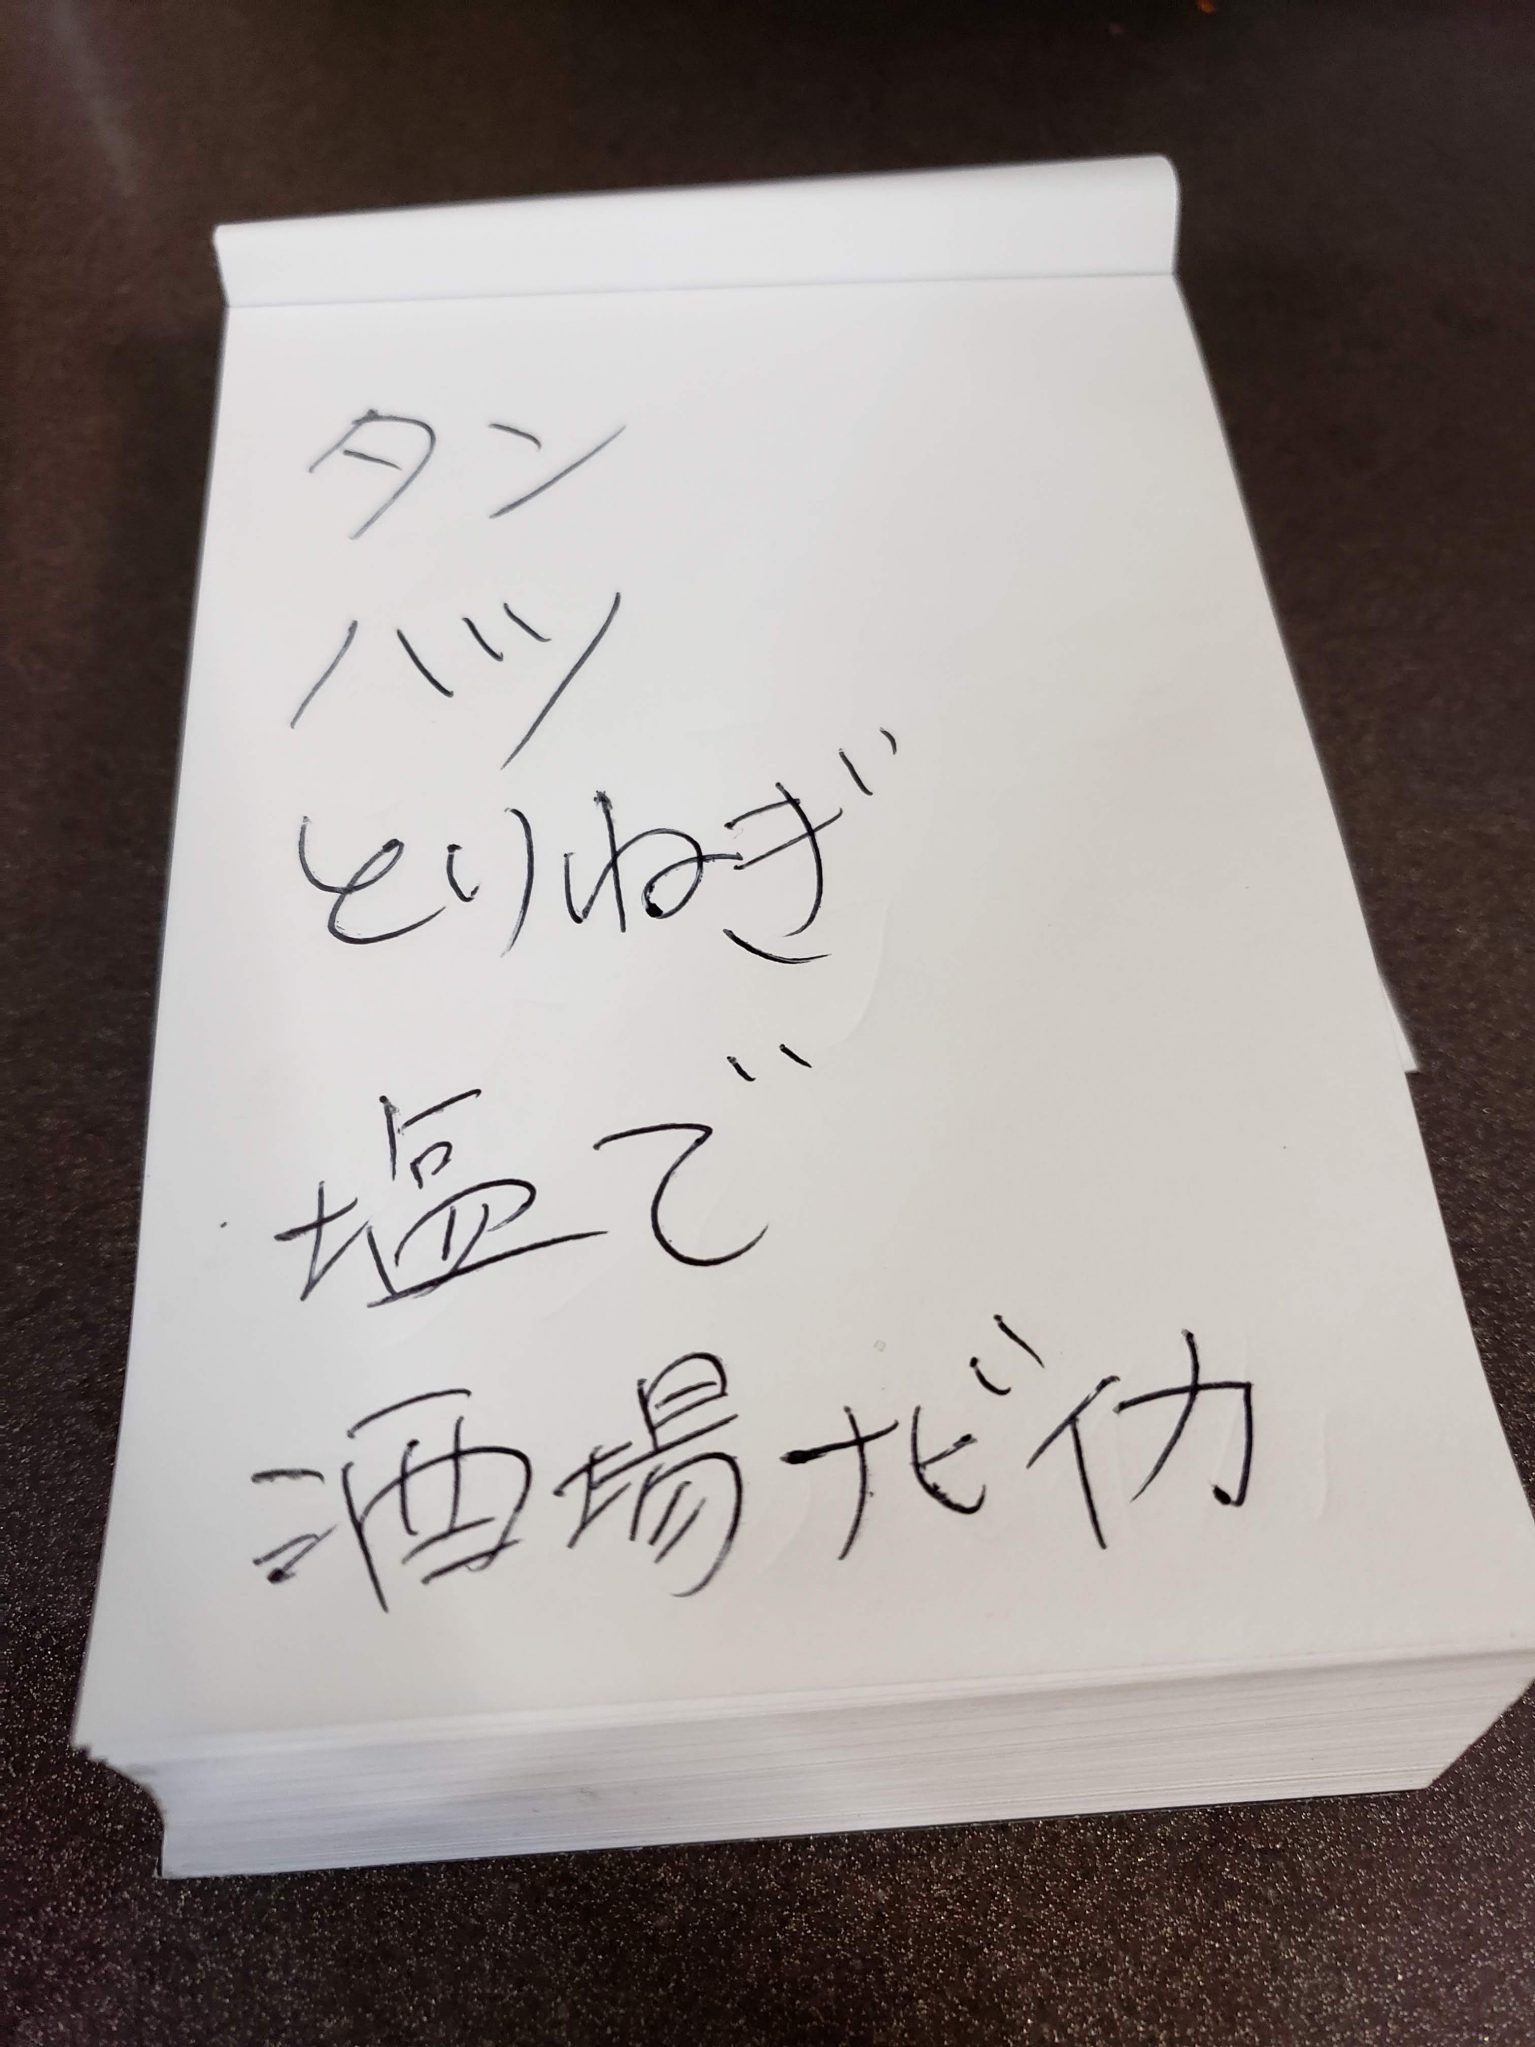 タン
ハツ
とりねぎ
塩で
酒場ナビイカ